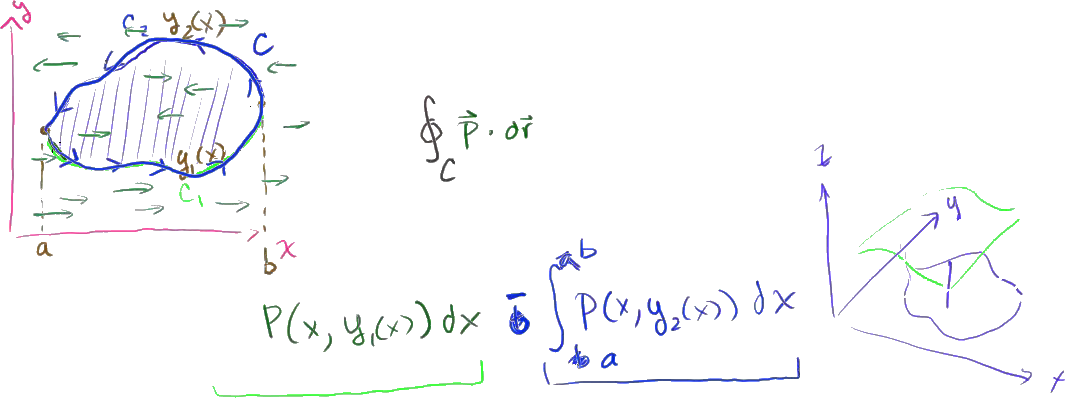 y
C₂ y₂(x) C
y₁(x)
C₁
a b x
∮_C P⃗ · dr⃗
P(x, y₁(x)) dx − ∫_a^b P(x, y₂(x)) dx
z
y
x